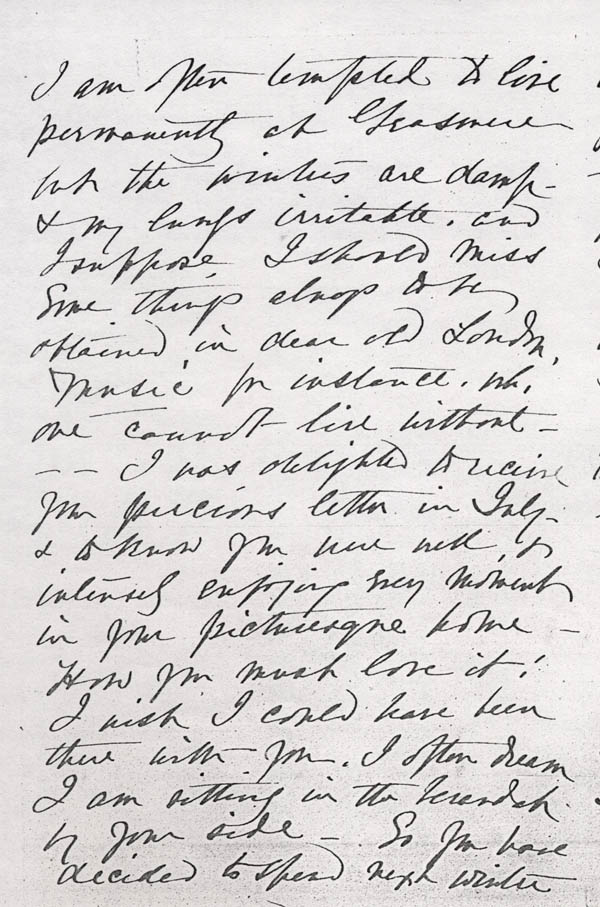 I am often tempted to live
permanently at Grasmere
but the winters are damp -
& my lungs irritable. and
I suppose I should miss
Some things always to be
obtained in dear old London,
Music for instance. wh.
one cannot live without -
- - I was delighted to receive
your precious letter in July -
& to know you were well, &
intensely enjoying every moment
in your picturesque home -
How you must love it!
I wish I could have been
there with you. I often dream
I am sitting in the verandah
by your side - So you have
decided to spend next winter